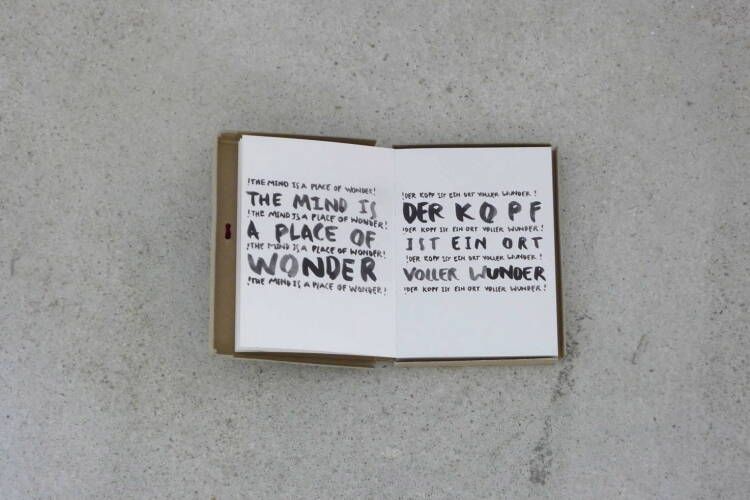 !THE MIND IS A PLACE OF WONDER!
THE MIND IS
!THE MIND IS A PLACE OF WONDER!
A PLACE OF
!THE MIND IS A PLACE OF WONDER!
WONDER
!THE MIND IS A PLACE OF WONDER!
!DER KOPF IST EIN ORT VOLLER WUNDER!
DER KOPF
!DER KOPF IST EIN ORT VOLLER WUNDER!
IST EIN ORT
!DER KOPF IST EIN ORT VOLLER WUNDER!
VOLLER WUNDER
!DER KOPF IST EIN ORT VOLLER WUNDER!